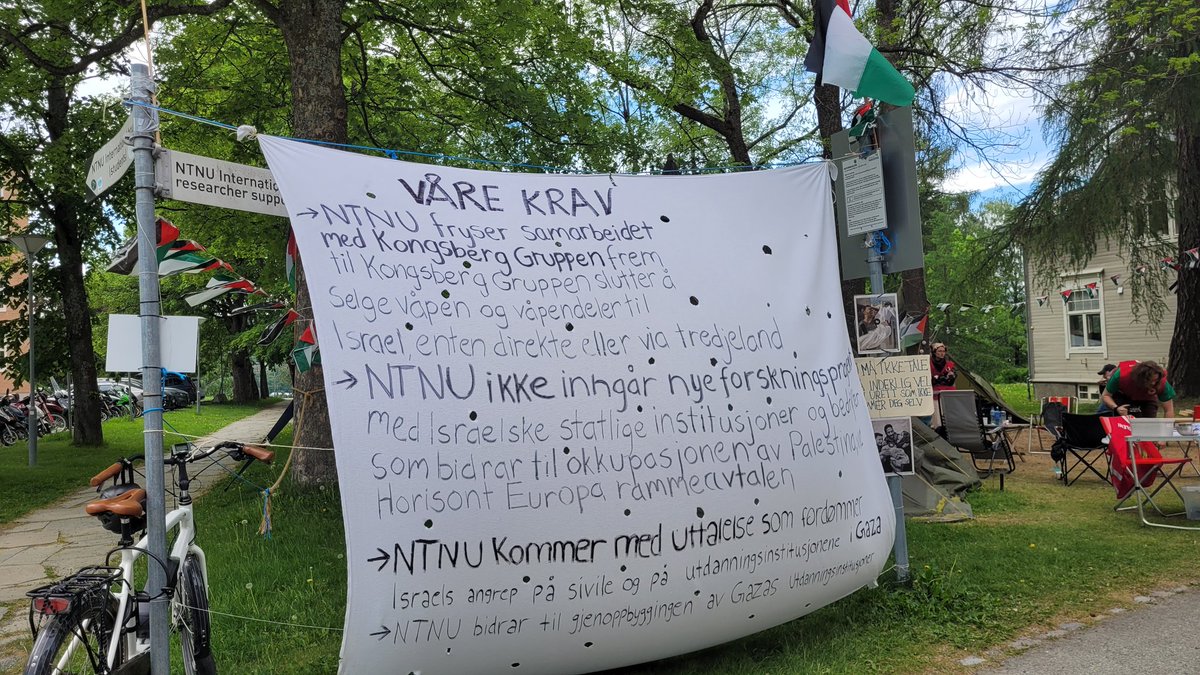 NTNU International
NTNU Internation
researcher suppo
VÅRE KRAV
→NTNU fryser samarbeidet
med Kongsberg Gruppen frem
til Kongsberg Gruppen slutter å
Selge våpen og våpendeler til
Israel, enten direkte eller via tredjeland
→NTNU ikke inngår nye forskningspro
med Israelske statlige institusjoner og
som bidrar til okkupasjonen av Palestina,
Horisont Europa rammeavtalen
→NTNU kommer med uttalelse som fordømmer
Israels angrep på sivile og på utdanningsinstitusjonene i Gaza
→NTNU bidrar til gjenoppbyggingen av Gazas utdanningsinstitusjoner
MÅ IKKE TALE
INDERLIG VEL
URETT SOM IKKE
DEG SELV